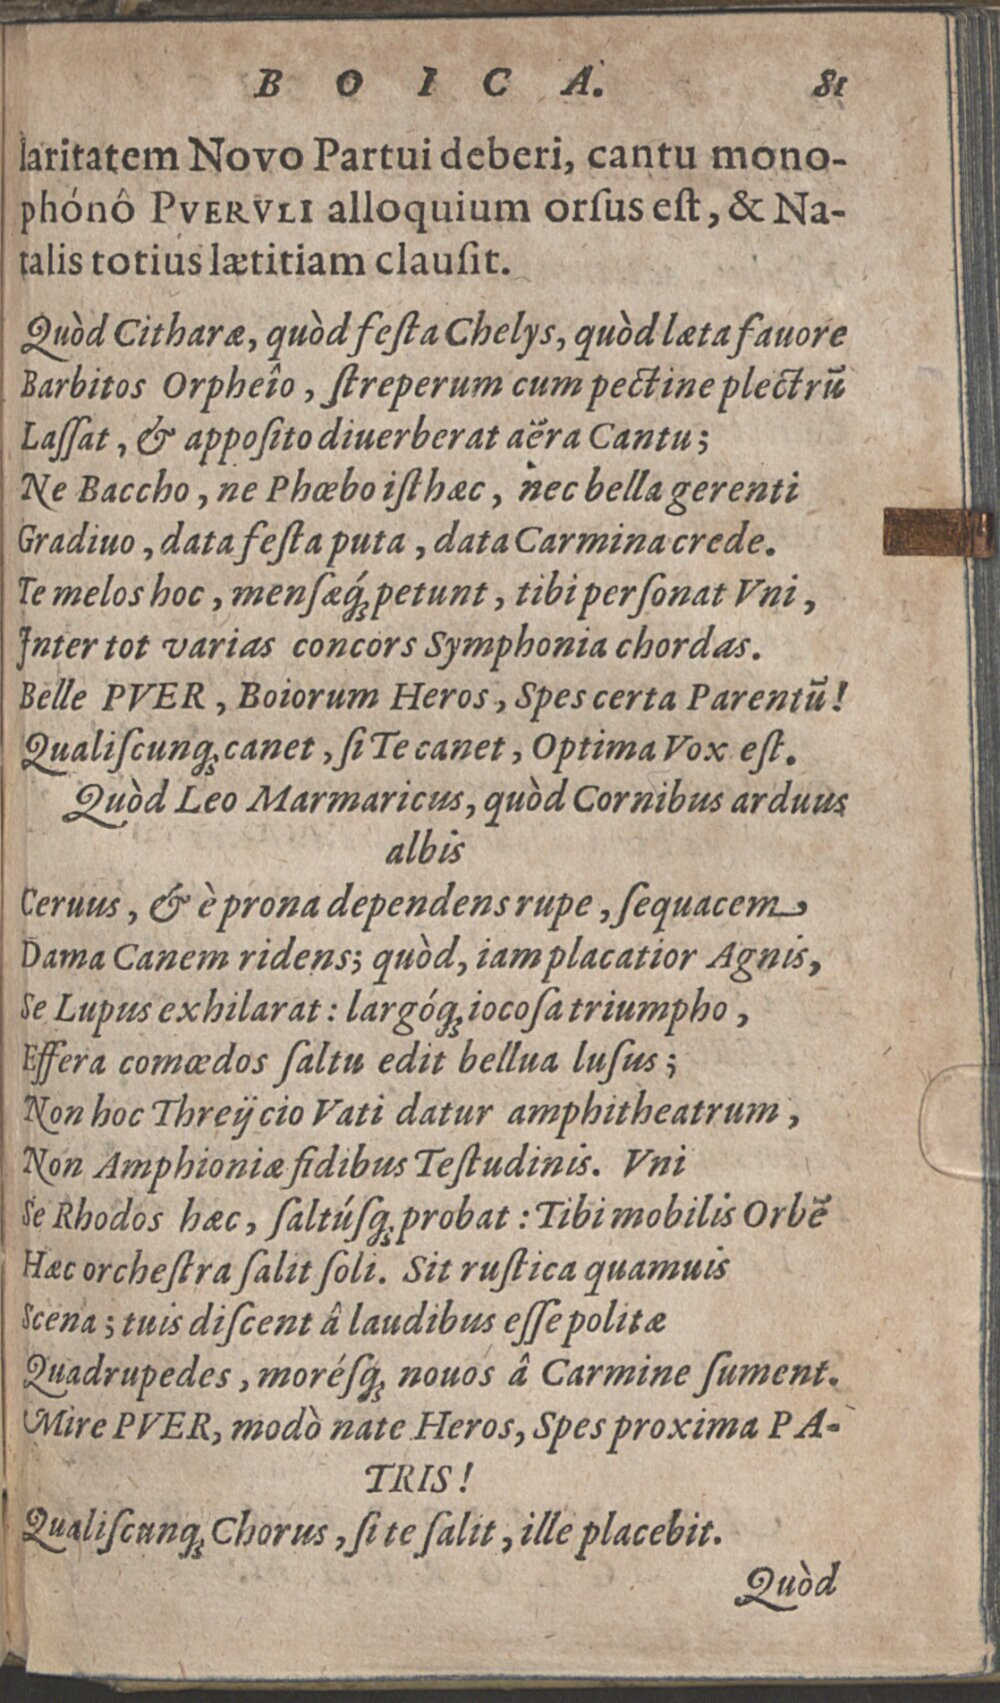 BOICA. 81
laritatem Novo Partui deberi, cantu mono-
phónô PVERVLI alloquium orſus eſt, & Na-
talis totius lætitiam clauſit.
Quòd Citharæ, quòd feſta Chelys, quòd læta fauore
Barbitos Orpheîo, ſtreperum cum pectine plectrū
Laſſat, & appoſito diuerberat aëra Cantu;
Ne Baccho, ne Phœbo iſthæc, nec bella gerenti
Gradiuo, data feſta puta, data Carmina crede.
Te melos hoc, menſæq́ꝫ petunt, tibi perſonat Vni,
Inter tot varias concors Symphonia chordas.
Belle PVER, Boiorum Heros, Spes certa Parentū!
Qualiſcunqꝫ canet, ſi Te canet, Optima Vox eſt.
Quòd Leo Marmaricus, quòd Cornibus arduus
albis
Ceruus, & è prona dependens rupe, ſequacem
Dama Canem ridens; quòd, iam placatior Agnis,
Se Lupus exhilarat: largóqꝫ iocoſa triumpho,
Effera comœdos ſaltu edit bellua luſus;
Non hoc Threijcio Vati datur amphitheatrum,
Non Amphioniæ fidibus Teſtudinis. Vni
Se Rhodos hæc, ſaltúſqꝫ probat: Tibi mobilis Orbē
Hæc orcheſtra ſalit ſoli. Sit ruſtica quamuis
Scena; tuis diſcent â laudibus eſſe politæ
Quadrupedes, moréſqꝫ nouos â Carmine ſument.
Mire PVER, modò nate Heros, Spes proxima PA-
TRIS!
Qualiſcunqꝫ Chorus, ſi te ſalit, ille placebit.
Quòd